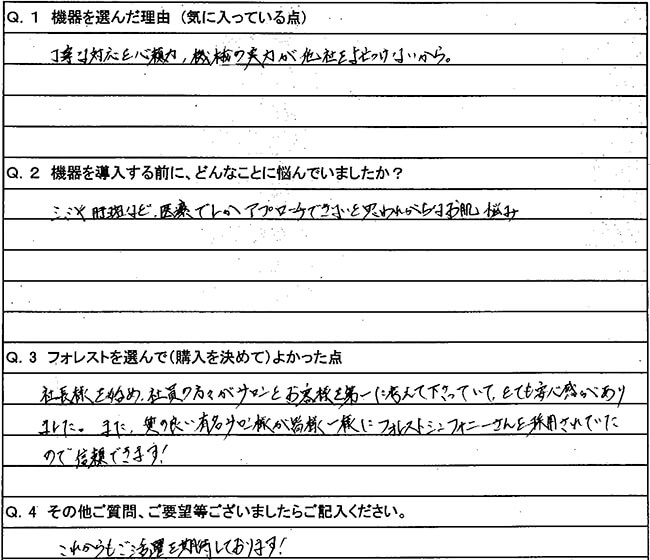 Q. 1 機器を選んだ理由 (気に入っている点)
丁寧な対応と心強力、機械の実力が他社をよせつけないから。
Q. 2 機器を導入する前に、どんなことに悩んでいましたか？
シミや肝斑など、医療でしかアプローチできないと思われがちなお肌悩み
Q. 3 フォレストを選んで(購入を決めて)よかった点
社長様を始め、社員の方々がサロンとお客様を第一に考えて下さっていて、とても安心感があり
ました。また、質の良い有名サロン様が皆様一様にフォレストシンフォニーさんを採用されていた
ので信頼できます！
Q. 4 その他ご質問、ご要望等ございましたらご記入ください。
これからもご活躍を期待しております！